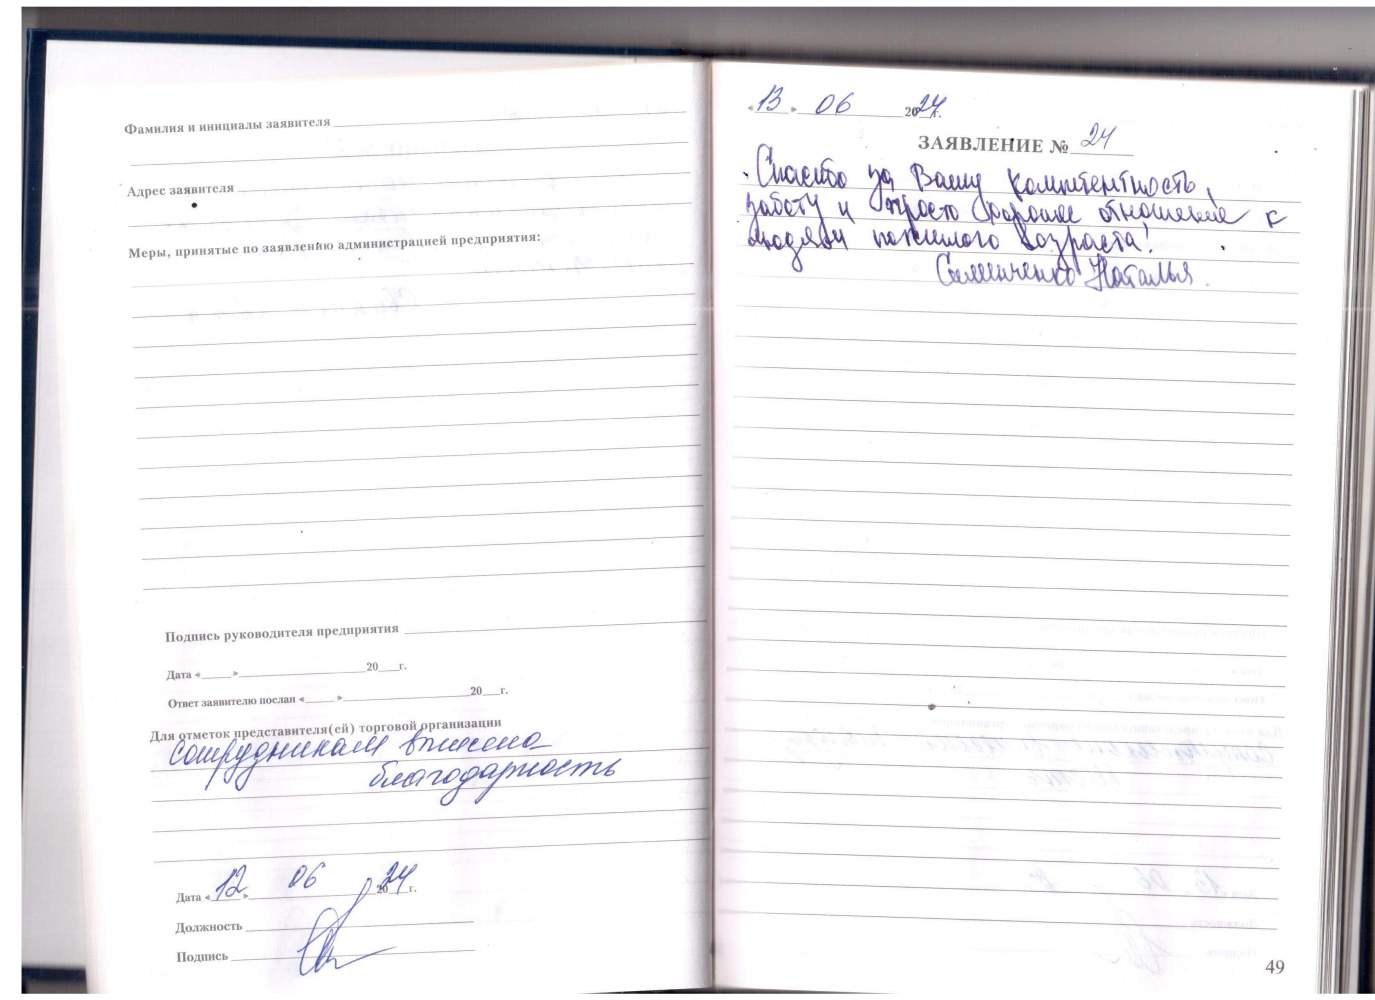 Фамилия и инициалы заявителя
Адрес заявителя
Меры, принятые по заявлению администрацией предприятия:
Подпись руководителя предприятия
Дата «___»___20___г.
Ответ заявителю послан «___»___20___г.
Для отметок представителя(ей) торговой организации
Сотрудникам внесена
благодарность
Дата «12» 06 2024 г.
Должность
Подпись
«13» 06 2024 г.
ЗАЯВЛЕНИЕ № 24
Спасибо за Вашу компетентность,
заботу и просто хорошее отношение к
людям пожилого возраста!
Наталья.
49